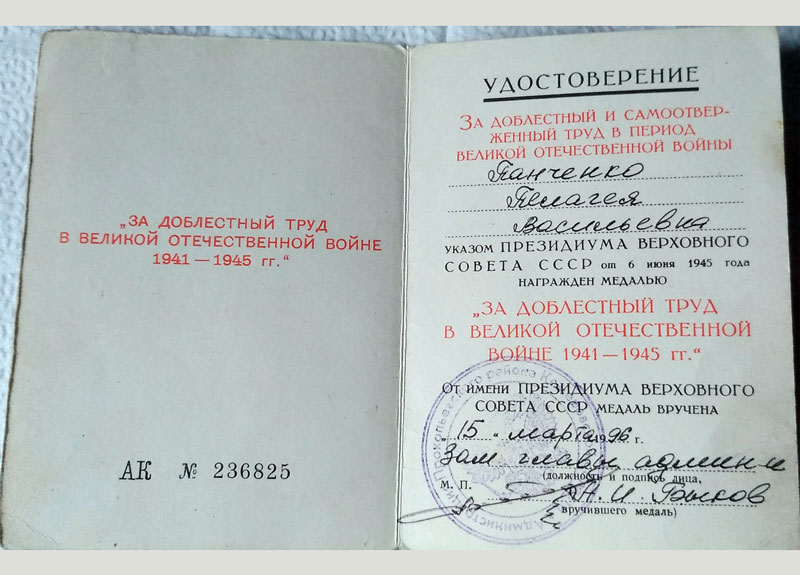 „ЗА ДОБЛЕСТНЫЙ ТРУД
В ВЕЛИКОЙ ОТЕЧЕСТВЕННОЙ ВОЙНЕ
1941 — 1945 гг.“
АК № 236825
УДОСТОВЕРЕНИЕ
ЗА ДОБЛЕСТНЫЙ И САМООТВЕР-
ЖЕННЫЙ ТРУД В ПЕРИОД
ВЕЛИКОЙ ОТЕЧЕСТВЕННОЙ ВОЙНЫ
Панченко
Пелагея
Васильевна
УКАЗОМ ПРЕЗИДИУМА ВЕРХОВНОГО
СОВЕТА СССР от 6 июня 1945 года
НАГРАЖДЕН МЕДАЛЬЮ
„ЗА ДОБЛЕСТНЫЙ ТРУД
В ВЕЛИКОЙ ОТЕЧЕСТВЕННОЙ
ВОЙНЕ 1941 — 1945 гг.“
ОТ ИМЕНИ ПРЕЗИДИУМА ВЕРХОВНОГО
СОВЕТА СССР МЕДАЛЬ ВРУЧЕНА
„15 „ марта 1996 г.
Зам главы админи
(должность и подпись лица,
М. П. Н. И. Быков
вручившего медаль)
Прокопьевского района